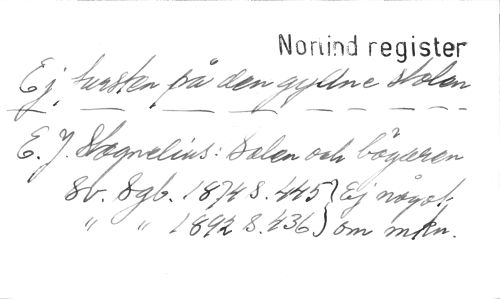 Norlind register
Ej fursten på den gyllne stolen
E. J. Stagnelius: Solen och bägaren
Sv. Sgb. 1874 S. 445 } Ej något
" " 1892 S. 436 } om mkn.